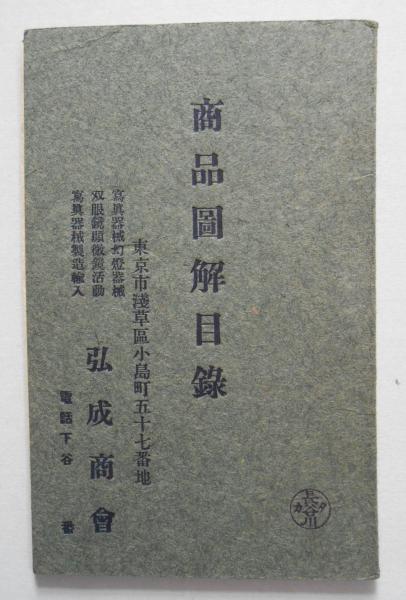 商品圖解目錄
東京市淺草區小島町五十七番地
寫眞器械幻燈器械
双眼鏡顯微鏡活動
寫眞器械製造輸入
弘成商會
電話下谷 番
長谷川
カタ